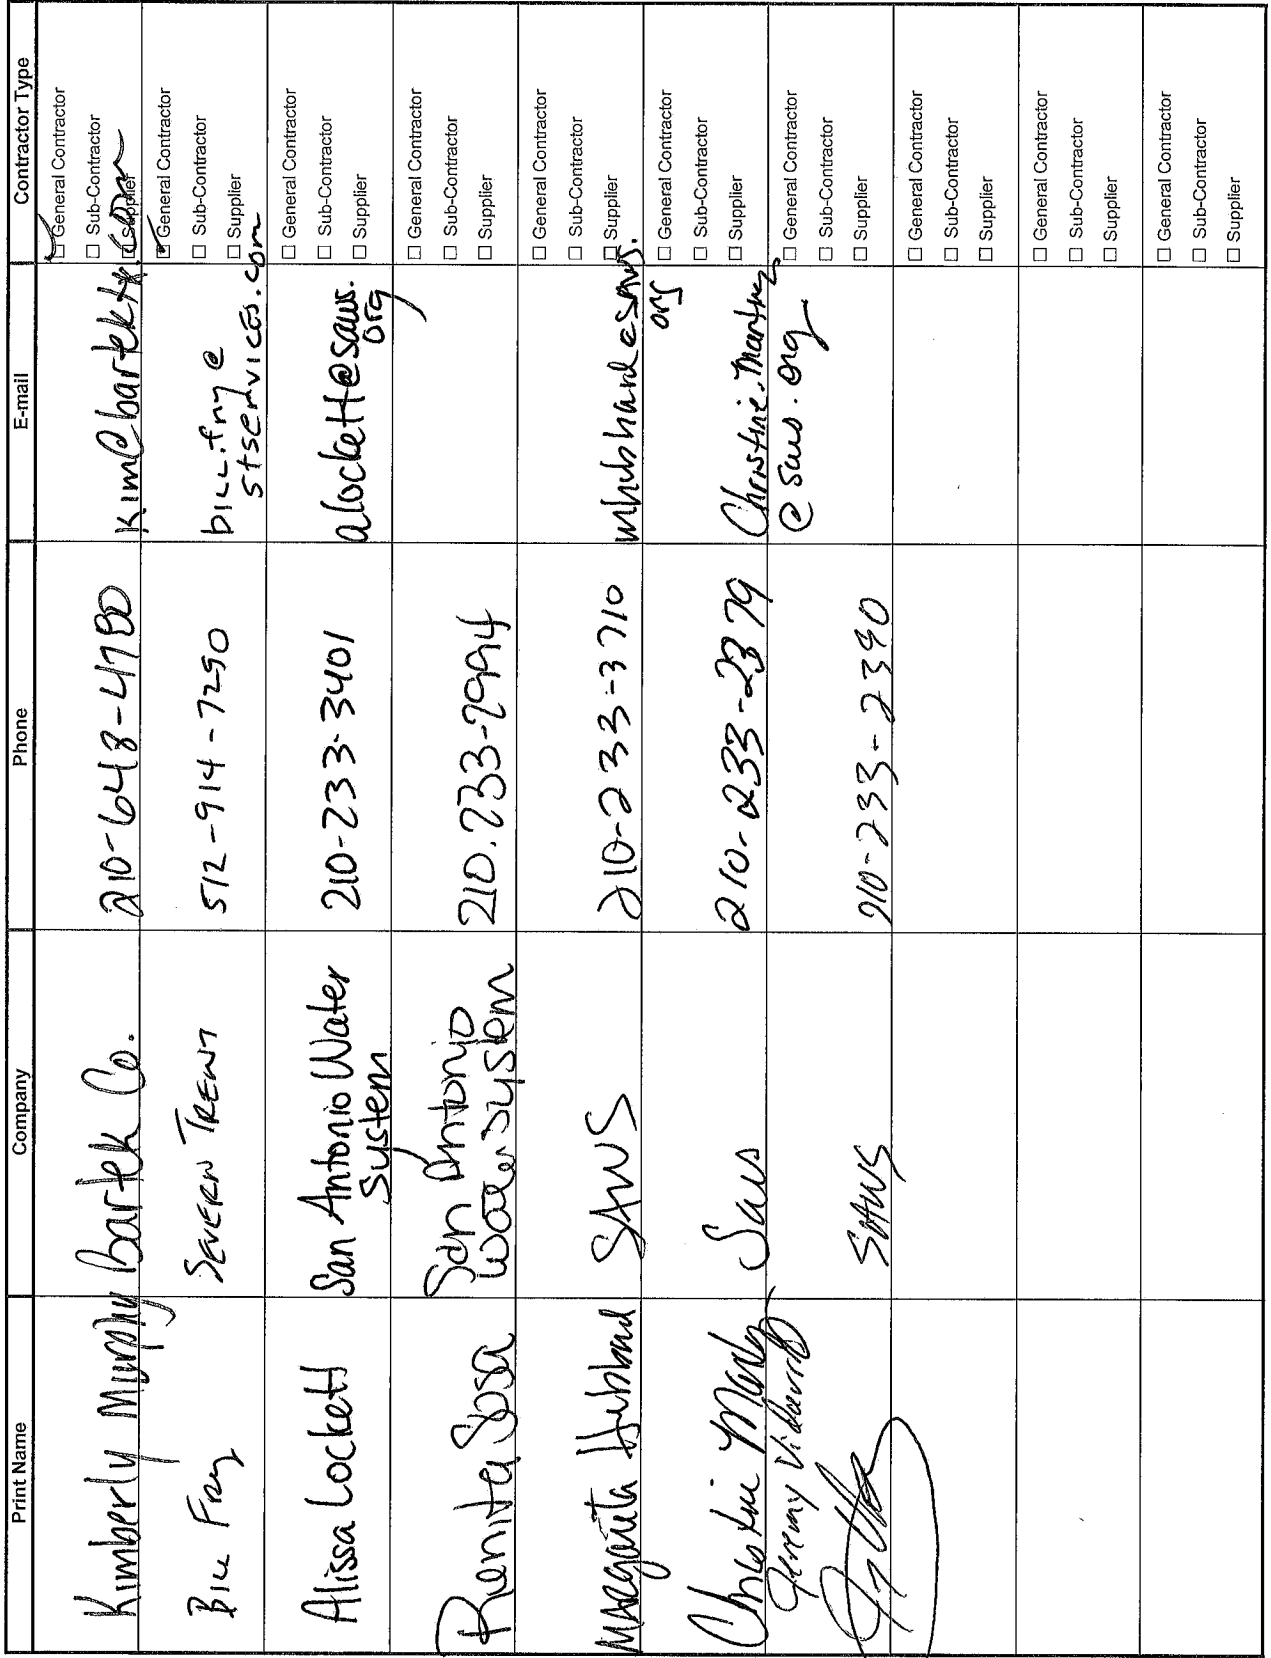 Print Name Company Phone E-mail Contractor Type
Kimberly Murphy Bartek Co. 210-648-4780 kim@bartektx.com
☑ General Contractor
☐ Sub-Contractor
☐ Supplier
Bill Fry SEVERN TRENT 512-914-7250 bill.fry@
stservices.com
☑ General Contractor
☐ Sub-Contractor
☐ Supplier
Alissa Lockett San Antonio Water 210-233-3401 alockett@saws.
System org
☐ General Contractor
☐ Sub-Contractor
☐ Supplier
Sosa San Antonio 210.233-2994
Water System
☐ General Contractor
☐ Sub-Contractor
☐ Supplier
Margarita Hubbard SAWS 210-233-3710 mhubbard@saws.
org
☐ General Contractor
☐ Sub-Contractor
☐ Supplier
Christine Saws 210-233-2379 Christine.Martinez
@saws.org
☐ General Contractor
☐ Sub-Contractor
☐ Supplier
Jeremy
SAWS 210-233-2390
☐ General Contractor
☐ Sub-Contractor
☐ Supplier
☐ General Contractor
☐ Sub-Contractor
☐ Supplier
☐ General Contractor
☐ Sub-Contractor
☐ Supplier
☐ General Contractor
☐ Sub-Contractor
☐ Supplier